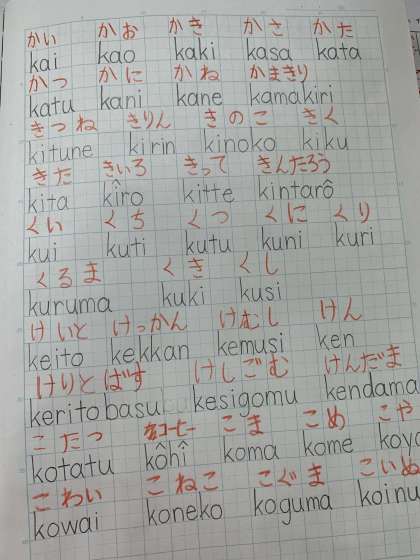 かい かお かき かさ かた
kai kao kaki kasa kata
かつ かに かね かまきり
katu kani kane kamakiri
きつね きりん きのこ きく
kitune kirin kinoko kiku
きた きいろ きって きんたろう
kita kîro kitte kintarô
くい くち くつ くに くり
kui kuti kutu kuni kuri
くるま くき くし
kuruma kuki kusi
けいと けっかん けむし けん
keito kekkan kemusi ken
けりとばす けしごむ けんだま
keritobasu kesigomu kendama
こたつ コーヒー こま こめ こや
kotatu kôhî koma kome koya
こわい こねこ こぐま こいぬ
kowai koneko koguma koinu